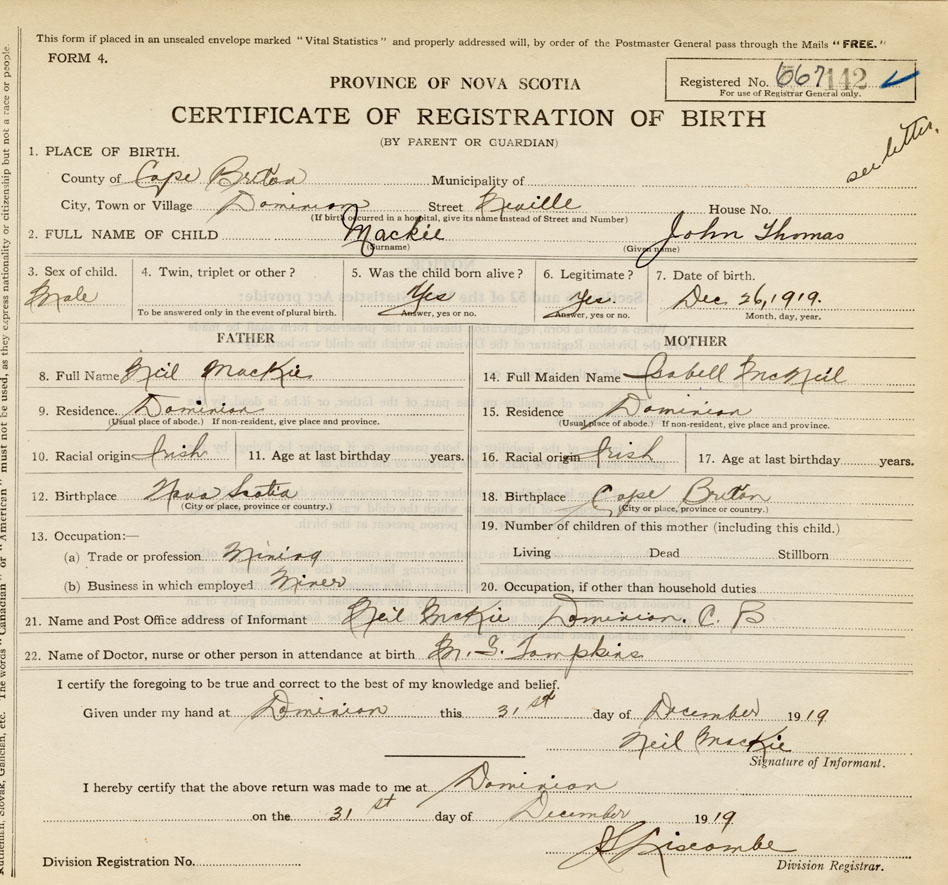 This form if placed in an unsealed envelope marked "Vital Statistics" and properly addressed will, by order of the Postmaster General pass through the Mails "FREE."
FORM 4.
PROVINCE OF NOVA SCOTIA
Registered No. 667142
For use of Registrar General only.
CERTIFICATE OF REGISTRATION OF BIRTH
(BY PARENT OR GUARDIAN)
see letter.
1. PLACE OF BIRTH.
County of Cape Breton Municipality of
City, Town or Village Dominion Street Neville House No.
(If birth occurred in a hospital, give its name instead of Street and Number)
2. FULL NAME OF CHILD Mackie John Thomas
(Surname) (Given name)
3. Sex of child. 4. Twin, triplet or other? 5. Was the child born alive? 6. Legitimate? 7. Date of birth.
Male Yes Yes. Dec. 26, 1919.
To be answered only in the event of plural birth. Answer, yes or no. Answer, yes or no. Month, day, year.
FATHER
8. Full Name Neil MacKie
9. Residence. Dominion
(Usual place of abode.) If non-resident, give place and province.
10. Racial origin Irish 11. Age at last birthday years.
12. Birthplace Nova Scotia
(City or place, province or country.)
13. Occupation:—
(a) Trade or profession Mining
(b) Business in which employed Miner
MOTHER
14. Full Maiden Name Isabell McNeil
15. Residence Dominion
(Usual place of abode.) If non-resident, give place and province.
16. Racial origin Irish 17. Age at last birthday years.
18. Birthplace Cape Breton
(City or place, province or country.)
19. Number of children of this mother (including this child.)
Living Dead Stillborn
20. Occupation, if other than household duties
21. Name and Post Office address of Informant Neil McKie Dominion. C. B
22. Name of Doctor, nurse or other person in attendance at birth M. G. Tompkins
I certify the foregoing to be true and correct to the best of my knowledge and belief.
Given under my hand at Dominion this 31st day of December 1919
Neil MacKie
Signature of Informant.
I hereby certify that the above return was made to me at Dominion
on the 31st day of December 1919
Liscombe
Division Registration No. Division Registrar.
Ruthenian, Slovak, Galician, etc. The words "Canadian" or "American" must not be used, as they express nationality or citizenship but not a race or people.